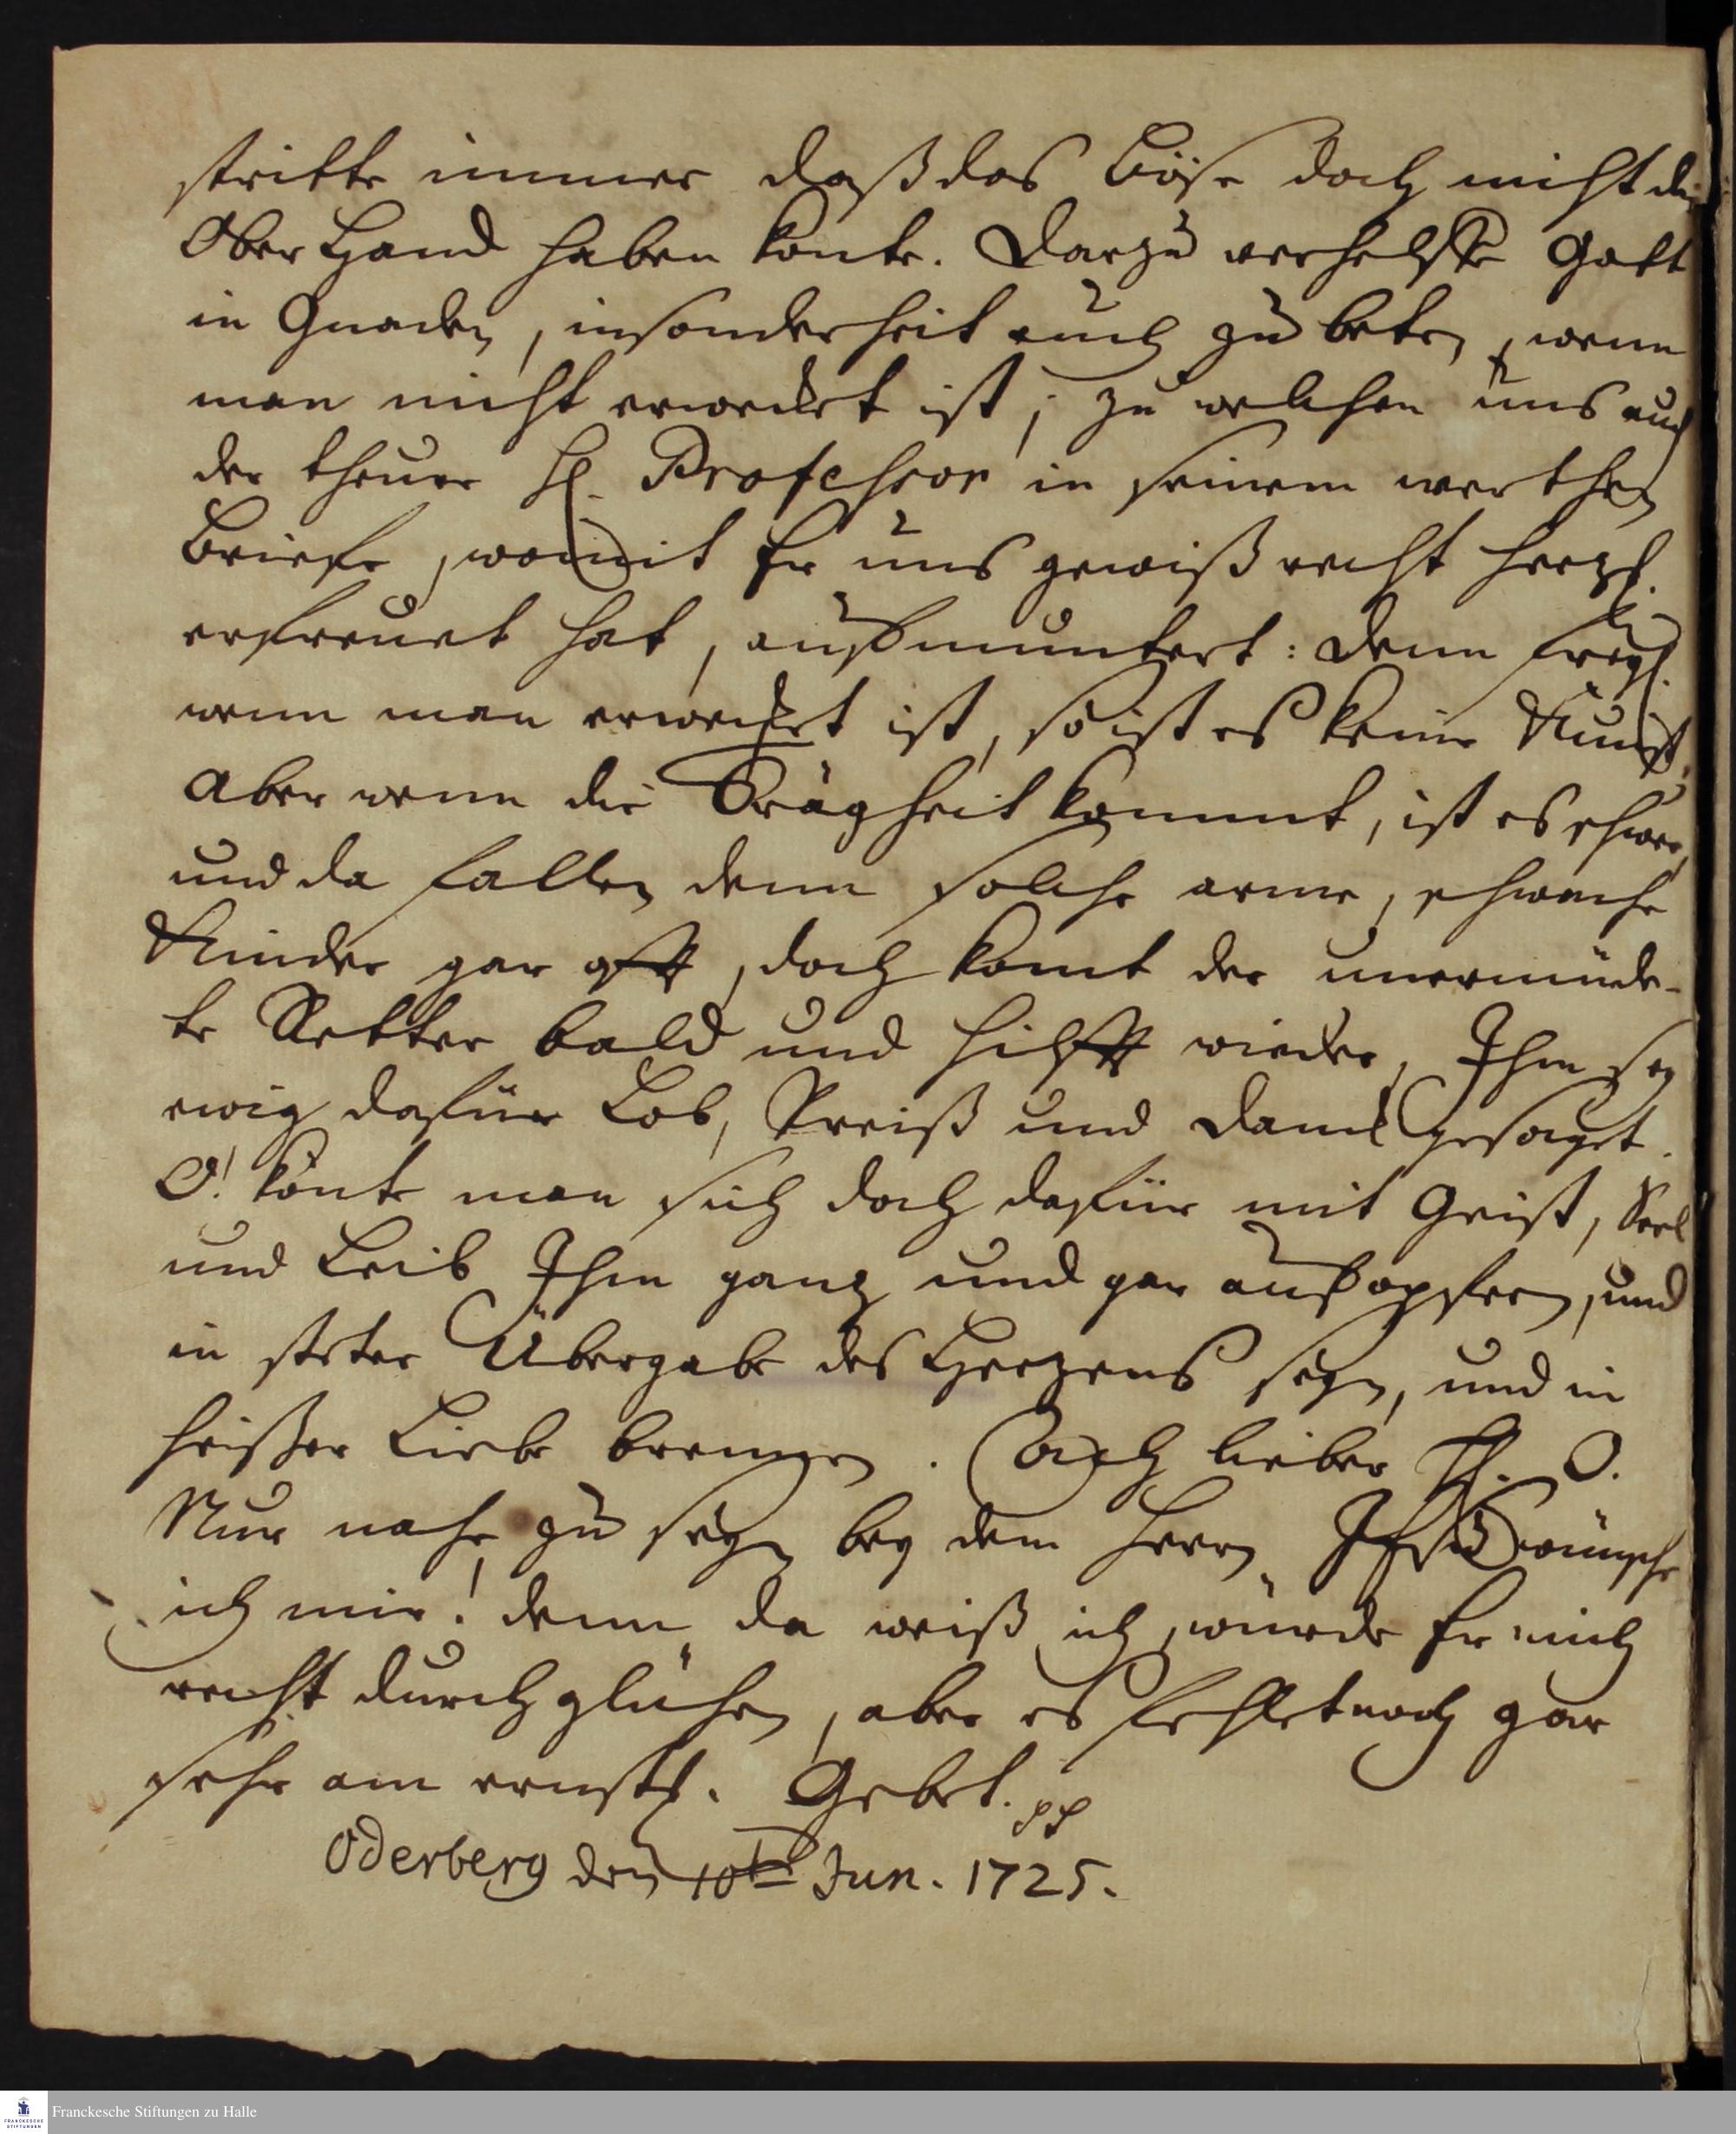 stritte immer daß das Böse doch nicht die
Ober Hand haben konte. Darzu verhelffe Gott
in Gnaden, insonderheit auch zu beten, wenn
man nicht erwecket ist; zu welchen uns auch
der theure H. Professor in seinem werthen
Briefe, womit Er uns gewiß recht hertzl.
erfreuet hat, auffmuntert: denn freyl.
wenn man erwecket ist, so ist es keine Kunst,
aber wenn die Trägheit kommt, ist es schwer,
und da fallen denn solche arme, schwache
Kinder gar offt, doch komt der unermüde-
te Retter bald und hilfft wieder, Ihm sey
ewig dafür Lob, Preiß und Danck gesaget.
O! könte man sich doch dafür mit Geist, Seel
und Leib Ihm gantz und gar auffopfern, und
in steter Übergabe des Hertzens seyn, und in
heißer Liebe brennen. Ach lieber H. O.
Nur nahe zu seyn bey dem Herrn Jesu wünsche
ich mir! denn da weiß ich, würde Er mich
recht durchglühen, aber es fehlet noch gar
sehr am ernstl. Gebet. pp
Oderberg den 10ten Jun. 1725.
Franckesche Stiftungen zu Halle